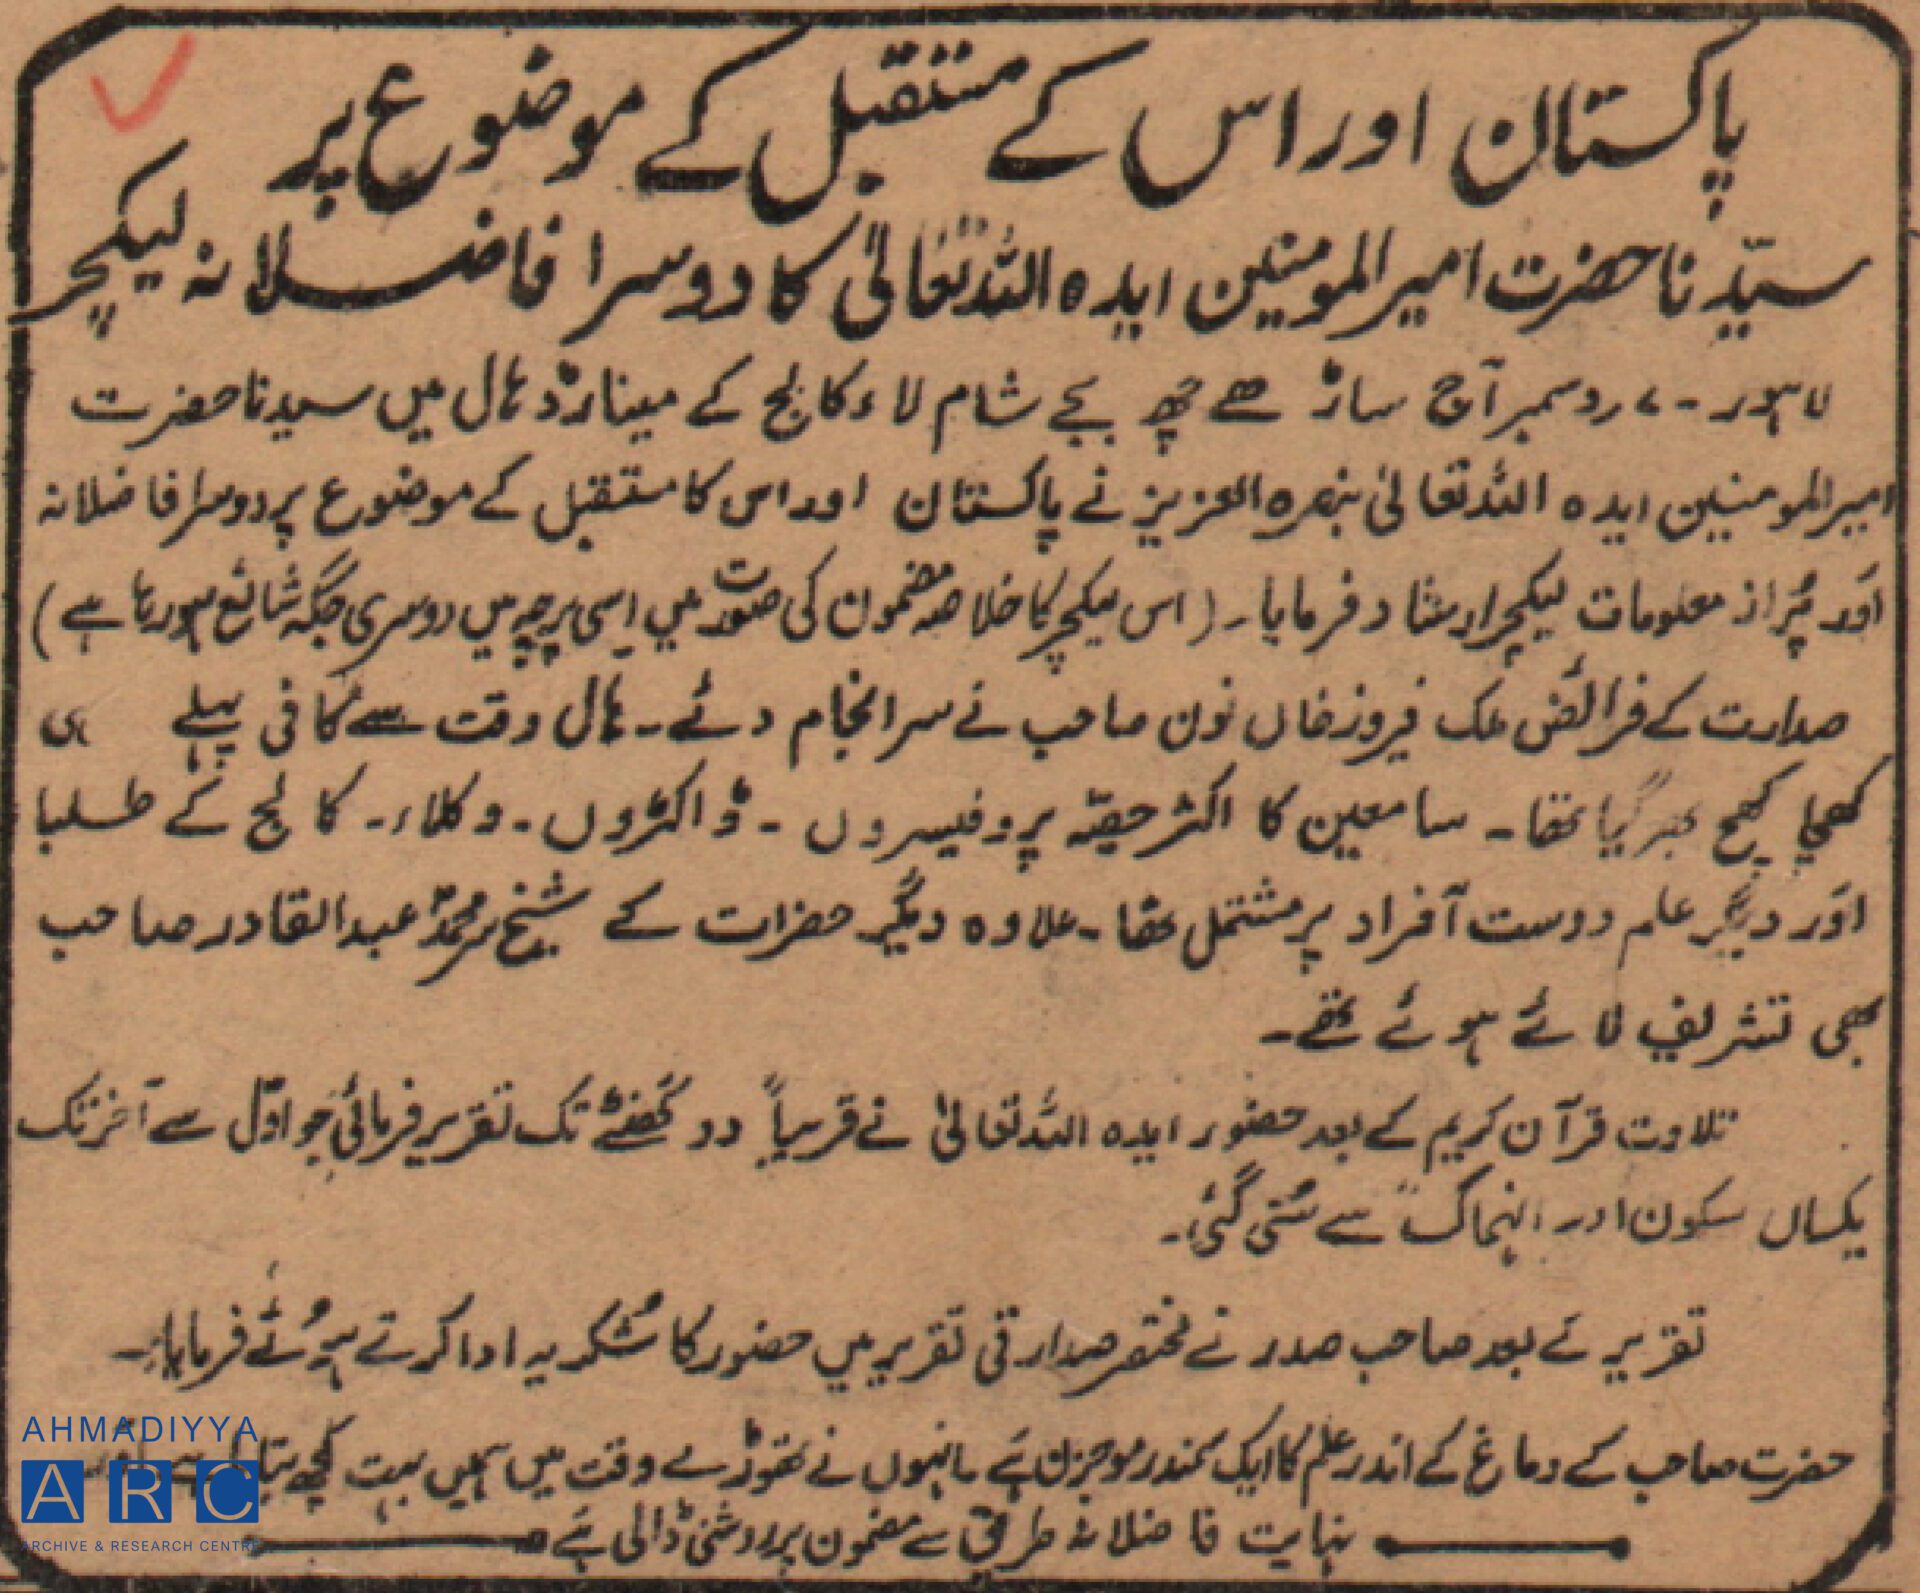 پاکستان اور اس کے مستقبل کے موضوع پر
سیّدنا حضرت امیرالمومنین ایدہ اللہ تعالیٰ کا دوسرا فاضلانہ لیکچر
لاہور - ۷ر دسمبر آج ساڑھے چھ بجے شام لاء کالج کے مینارڈ ہال میں سیدنا حضرت
امیرالمومنین ایدہ اللہ تعالیٰ بنصرہ العزیز نے پاکستان اور اس کا مستقبل کے موضوع پر دوسرا فاضلانہ
اور پُر از معلومات لیکچر ارشاد فرمایا۔ (اس لیکچر کا خلاصہ مضمون کی صورت میں اسی پرچہ میں دوسری جگہ شائع ہو رہا ہے)
صدارت کے فرائض ملک فیروز خاں نون صاحب نے سرانجام دئے۔ ہال وقت سے کافی پہلے ہی
کھچا کھچ بھر گیا تھا۔ سامعین کا اکثر حصّہ پروفیسروں - ڈاکٹروں - وکلاء - کالج کے طلبا
اور دیگر علم دوست افراد پر مشتمل تھا۔ علاوہ دیگر حضرات کے شیخ سر محمد عبدالقادر صاحب
بھی تشریف لائے ہوئے تھے۔
تلاوت قرآن کریم کے بعد حضور ایدہ اللہ تعالیٰ نے قریباً دو گھنٹے تک تقریر فرمائی جو اوّل سے آخر تک
یکساں سکون اور انہماک سے سُنی گئی۔
تقریر کے بعد صاحب صدر نے مختصر صدارتی تقریر میں حضور کا شکریہ ادا کرتے ہوئے فرمایا:۔
حضرت صاحب کے دماغ کے اندر علم کا ایک سمندر موجزن ہے۔ انہوں نے تھوڑے وقت میں ہمیں بہت کچھ بتایا ہے اور
نہایت فاضلانہ طریق سے مضمون پر روشنی ڈالی ہے
AHMADIYYA
ARC
ARCHIVE & RESEARCH CENTRE